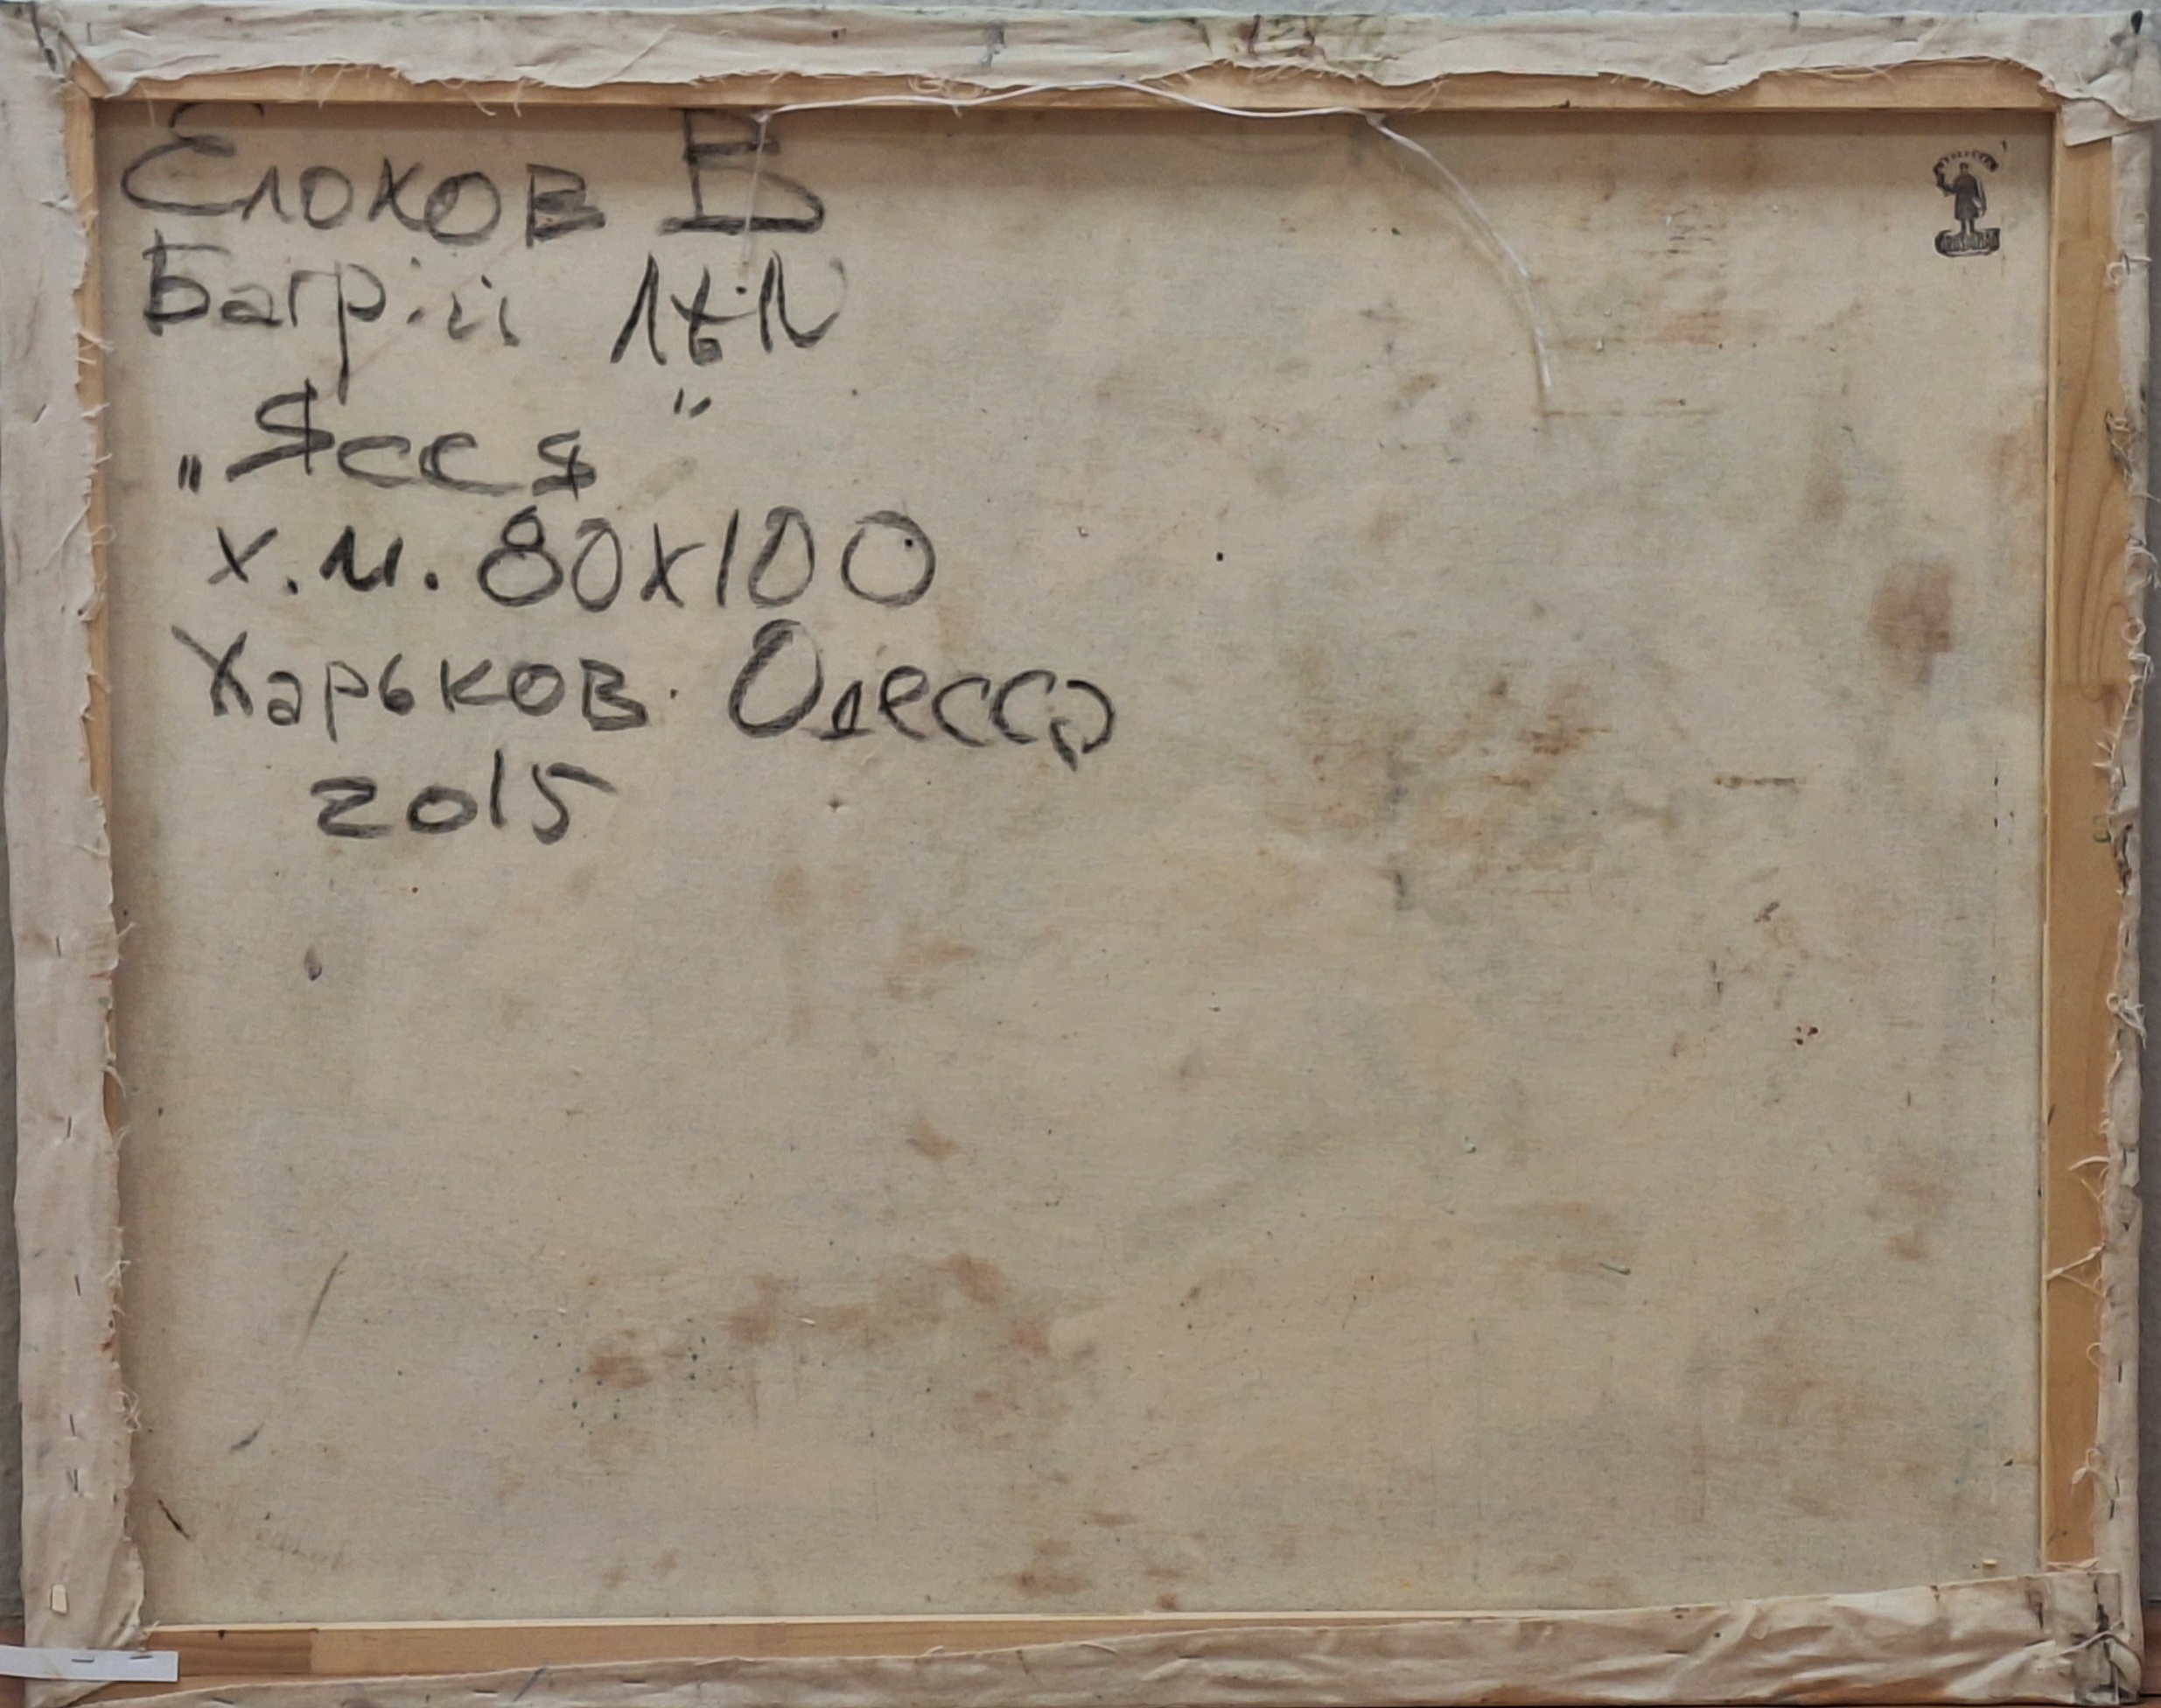 Елохов Б
Багрій
„Яссы"
х.м. 80х100
Харьков. Одесса
2015